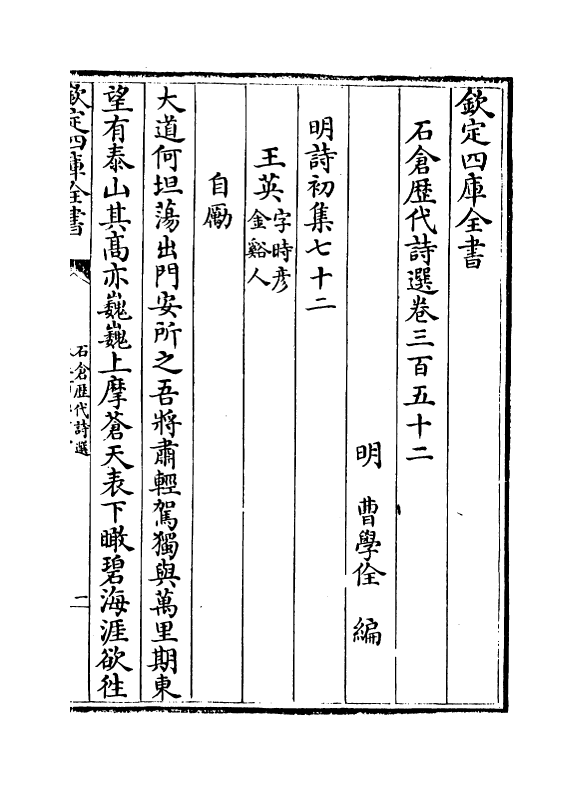 欽定四庫全書
石倉歴代詩選卷三百五十二
明　曹學佺　編
明詩初集七十二
王英字時彥金谿人
自勵
大道何坦蕩出門安所之吾將肅輕駕獨與萬里期東
望有泰山其髙亦巍巍上摩蒼天表下瞰碧海涯欲徃
欽定四庫全書
石倉歴代詩選